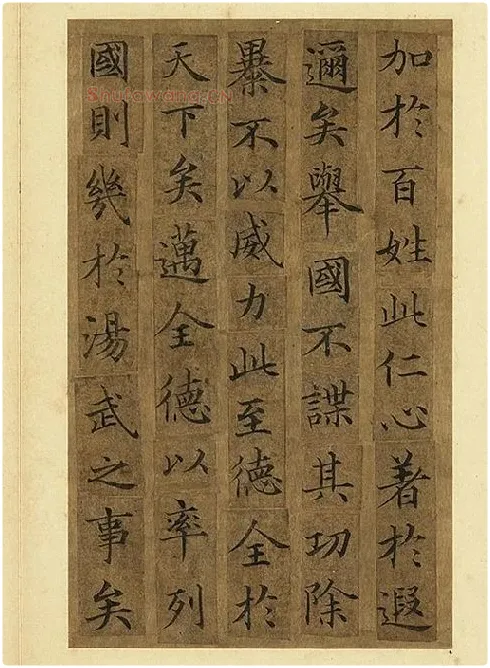 加於百姓此仁心著於遐
邇矣舉國不謀其功除
暴不以威力此至德全於
天下矣邁全德以率列
國則幾於湯武之事矣
Shufawang.CN